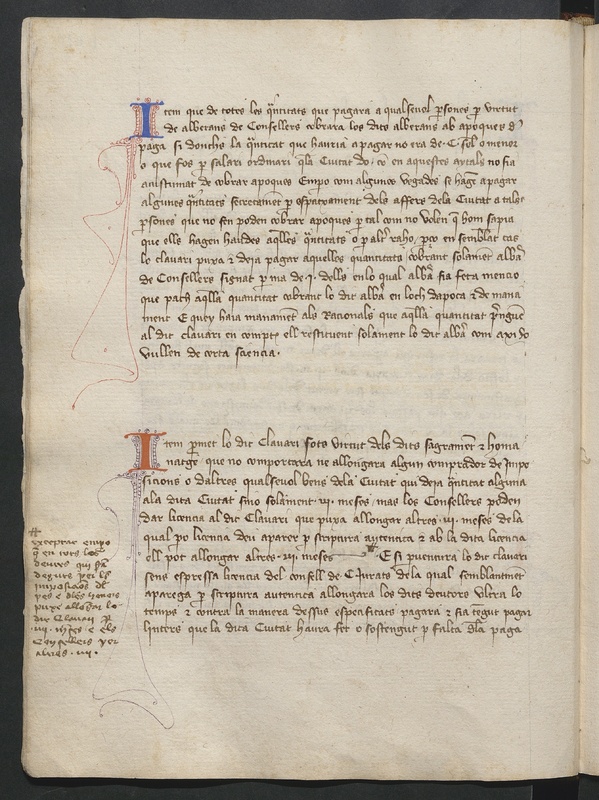 Item que de totes les q̃ntitats que pagara a qualseuol p̃sones p̱ virtut
de albarans de Consellers cobrara los dits albarans ab apoques d̃
paga si donchs la q̃ntitat que hauria a pagar no era de .C. sol̃ o menor
o que fos p̱ salari ordinari q̃ la Ciutat do / en aquestes aytals no sia
acustumat de cobrar apoques Empo com algunes vegades se haie a pagar
algunes q̃ntitats secretament p̱ espatxament dels affers dela Ciutat a tals
p̃sones que no sen poden cobrar apoques p̱ tal com no volen q̃ hom sapia
que ells hagen haudes aq̃lles q̃ntitats o p̱ altr̃ raho / p̱ço en semblãt cas
lo clauari puxa e deia pagar aquelles quantitats cobrant solamẽt albarã
de Consellers signat p̱ ma de .j. dells en lo qual albarã sia feta mencio
que pach aq̃lla quantitat cobrant lo dit albarã en loch dapoca e de mana
ment E quey haia manament als Racionals que aq̃lla quantitat p̃nguẽ
al dit clauari en compte ell restituent solament lo dit albarã com axi ho
vullen de certa sciencia .
Item p̱met lo dit Clauari sots virtut dels dits sagrament e homa
natge que no comportara ne allongara algun comprador de Impo
sicions o daltres qualseuol bens dela Ciutat qui deia q̃ntitat alguna
ala dita Ciutat sino solament .vi. meses / mas los Consellers poden
dar licencia al dit Clauari que puxa allongar altres .vi. meses dela
qual p̱o licencia deu aparer p̱ scriptura autentica e ab la dita licencia
ell pot allongar altres .vi. meses E si p̱ uentura lo dit clauari
sens espressa licencia del consell de .C. Jurats dela qual semblantment
aparega p̱ scriptura autentica allongara los dits deutors ultra lo
temps e contra la manera dessus especificats pagara e sia tẽgut pagar
linteres que la dita Ciutat haura fet o sostengut p̱ falta dla paga
exceptat empo
q̃ en tots los
deutes qui sã
deguts per les
imposicions dl
pes e
puxe allõgar lo
dit Clauari p̱
.vi. meses e els
Consellers per
altres .vi.